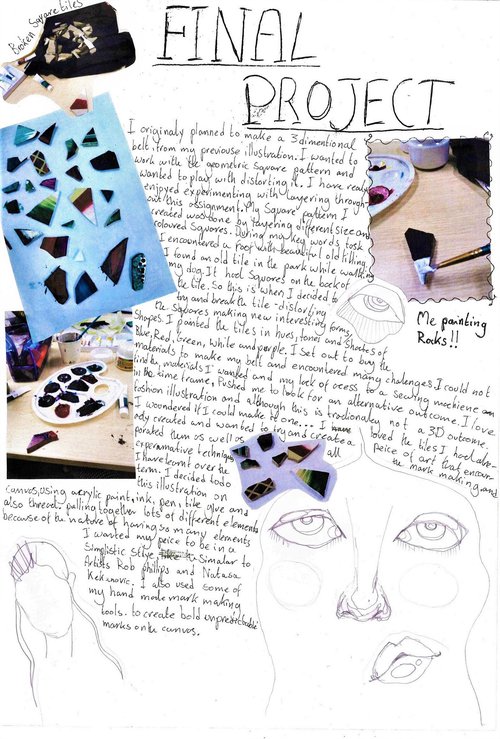 Broken Square tiles
FINAL
PROJECT
I originaly planned to make a 3 dimentional
belt from my previouse illustration. I wanted to
work with the geometric Square pattern and
wanted to play with distorting it. I have realy
enjoyed experimenting with layering through
out this assignment. My Square pattern I
created was done by layering different size and
coloured Squares. During my key words task
I encountered a roof with beautiful old tilling
I found an old tile in the park while walking
my dog. It had Squares on the back of
the tile. So this is when I decided to
try and break the tile - distorting
the Squares making new interesting forms,
Shapes. I painted the tiles in hues, tones and Shades of
Blue, Red, Green, White and purple. I Set out to buy the
materials to make my belt and encountered many challenges. I could not
find the materials I wanted and my lack of acess to a sewing machiene
in the time frame, Pushed me to look for an alternative outcome. I love
fashion illustration and although this is tradionaly not a 3D outcome,
I woondered if I could make it one... I loved the tiles I had alre-
ady created and wanted to try and create a peice of art that encorp-
porated them as well as all the mark making and
experamative techniques
I have learnt over the
term. I decided to do
this illustration on
canvas, using acrylic paint, ink, pen, tile glue and
also thread, pulling together lots of different elements
because of the nature of having so many elements
I wanted my peice to be in a
Simplistic Stlye Simalar to
Artists Rob phillips and Natasa
Kekanovic. I also used some of
my hand made mark making
tools. to create bold unpredictable
marks on the canvas.
Me painting
Rocks!!